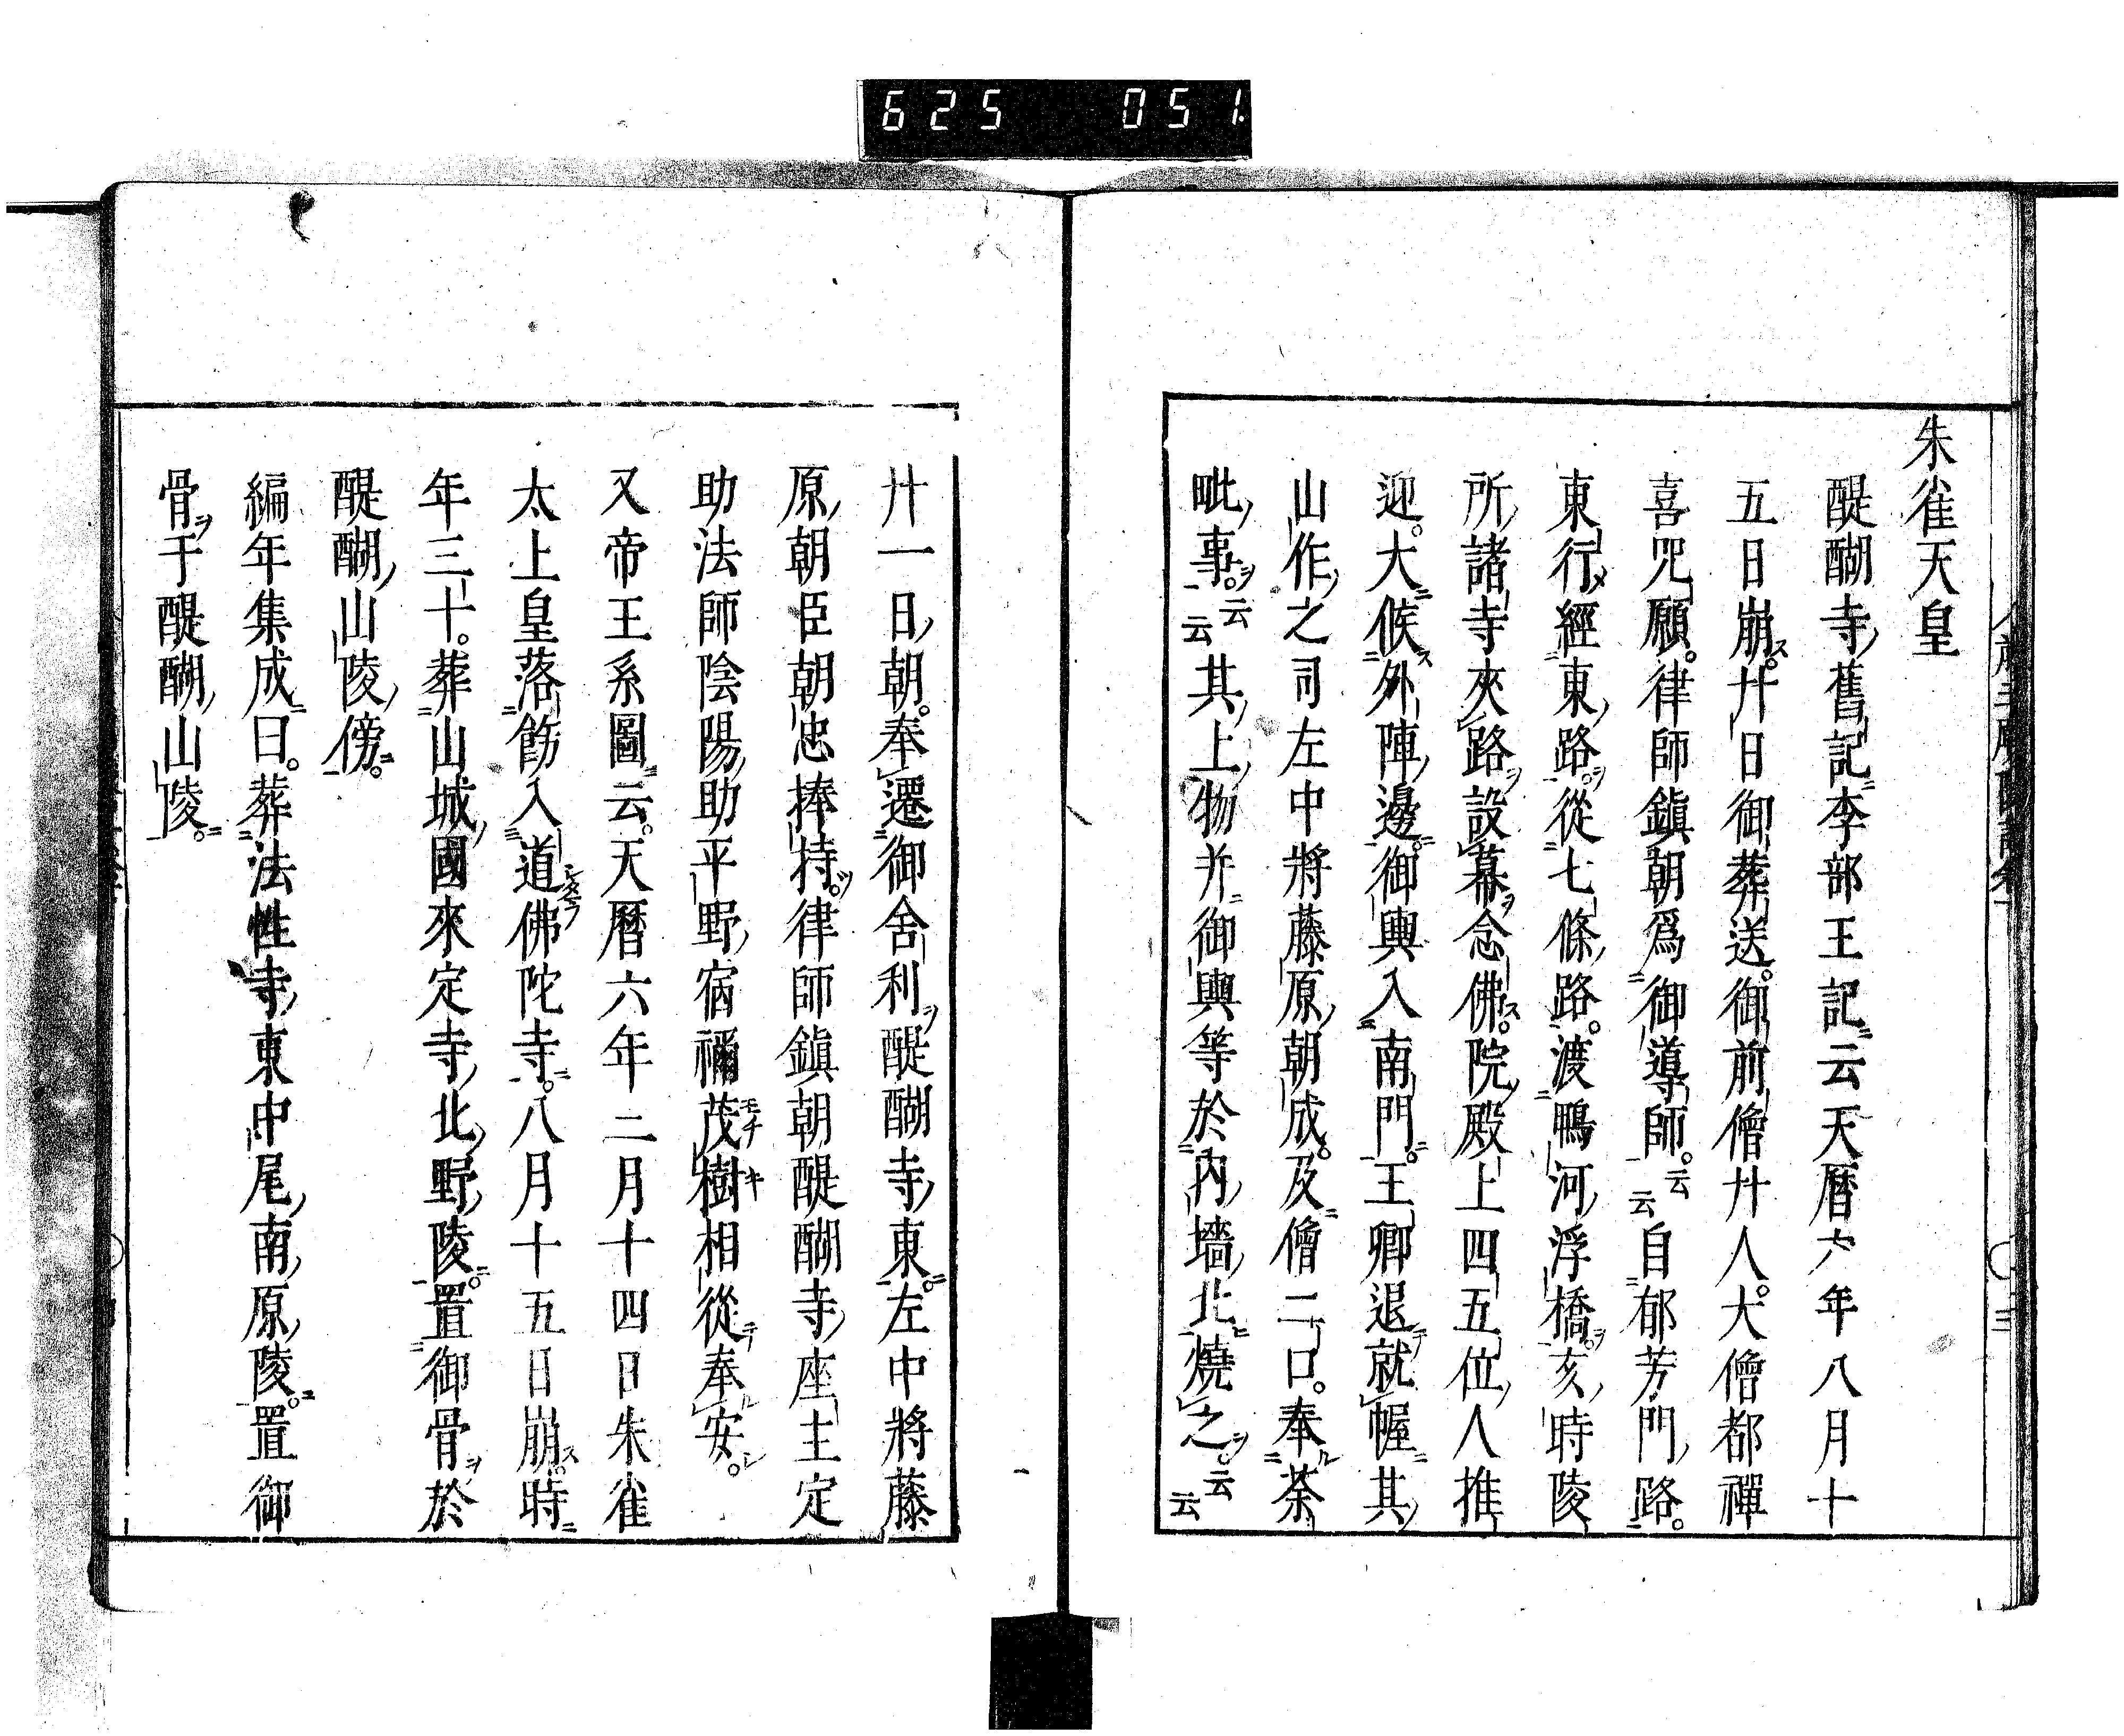 625 051
朱雀天皇
醍醐寺舊記李部王記云天曆六年八月十
五日崩廾日御葬送御前僧廾人大僧都禪
喜咒願律師鎮朝爲御導師云云自郁芳門路
東行經東路從七條路渡鴨河浮橋亥時陵
所諸寺夾路設幕念佛院殿上四五位人推
迎大候外陣邊御輿入南門王卿退就幄其
山作之司左中將藤原朝成及僧二口奉荼
毗事云云其上物并御輿等於內墻北燒之云云
廾一日朝奉遷御舍利醍醐寺東左中將藤
原朝臣朝忠捧持律師鎮朝醍醐寺座主定
助法師陰陽助平野宿禰茂樹相從奉安
又帝王系圖云天曆六年二月十四日朱雀
太上皇落飾入道佛陀寺八月十五日崩時
年三十葬山城國來定寺北野陵置御骨於
醍醐山陵傍
編年集成曰葬法性寺東中尾南原陵置御
骨于醍醐山陵